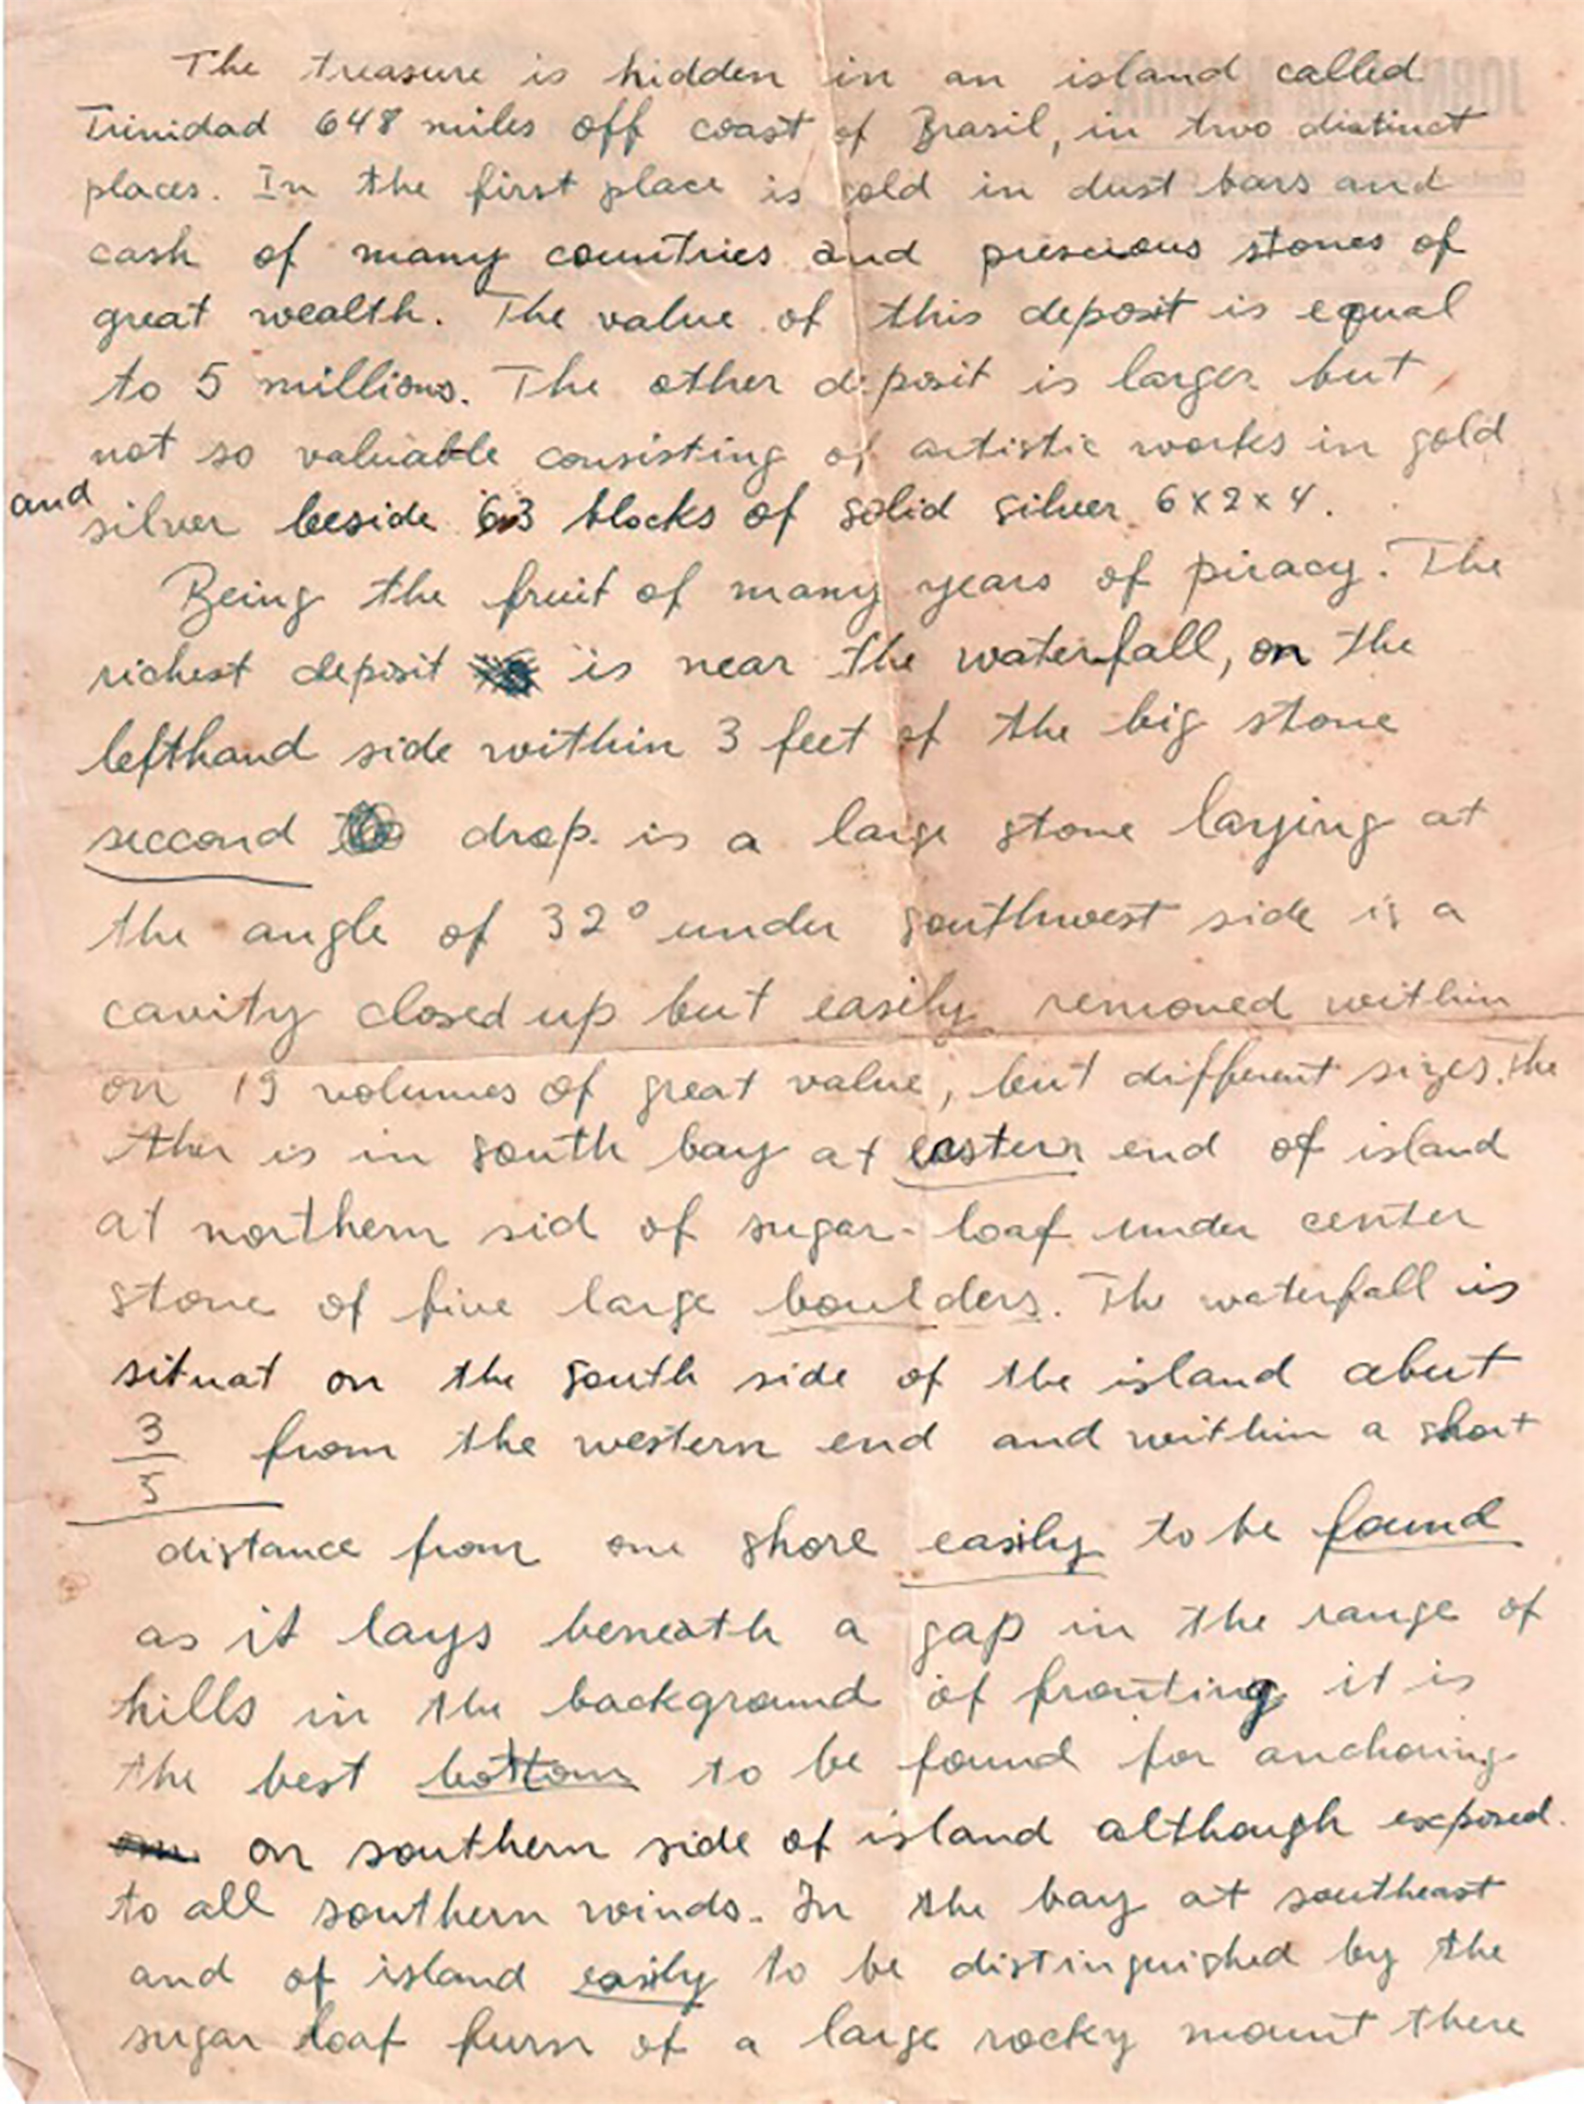 The treasure is hidden in an island called
Trinidad 648 miles off coast of Brasil, in two distinct
places. In the first place is gold in dust bars and
cash of many countries and prescious stones of
great wealth. The value of this deposit is equal
to 5 millions. The other deposit is larger but
not so valuable consisting of artistic works in gold
and silver beside 63 blocks of solid silver 6x2x4.
Being the fruit of many years of piracy. The
richest deposit is near the waterfall, on the
lefthand side within 3 feet of the big stone
seccond drop. is a large stone laying at
the angle of 32° under southwest side is a
cavity closed up but easily removed within
on 19 volumes of great value, but different sizes. The
ther is in south bay at eastern end of island
at northern sid of sugar-loaf under center
stone of five large boulders. The waterfall is
situat on the south side of the island abut
3/5 from the western end and within a short
distance from one shore easily to be found
as it lays beneath a gap in the range of
hills in the background of fronting it is
the best bottom to be found for anchoring
on southern side of island although exposed.
to all southern winds. In the bay at southeast
and of island easily to be distinguished by the
sugar loaf furm of a large rocky mount there